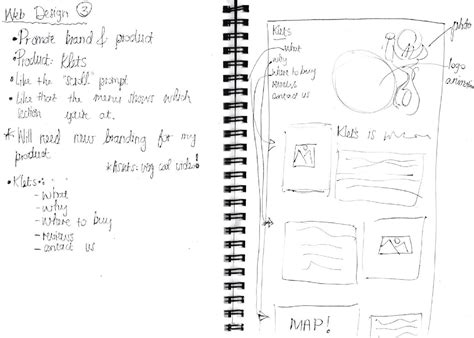 Web Design ③
• Promote brand & product
• Product: Klets
• Like the "scroll" prompt
• Like that the menu shows which
section your at.
* Will need new branding for my
product
• Klets:
- What
- Why
- Where to buy
- reviews
- contact us
Klets
what
why
where to buy
reviews
contact us
photo
logo
Klets is
MAP!